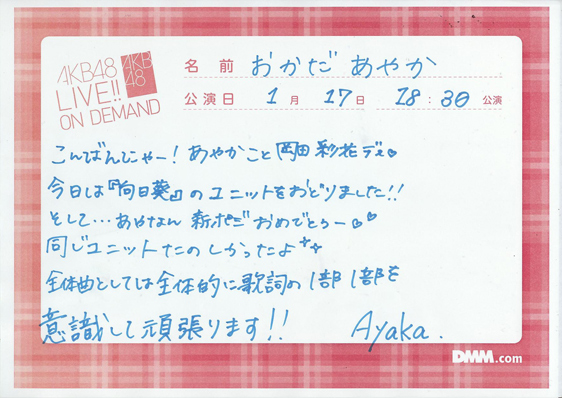 AKB48
LIVE!!
ON DEMAND
AKB
48
名前 おかだ あやか
公演日 1月 17日 18:30 公演
こんばんにゃー! あやかこと 岡田彩花です♥
今日は『向日葵』のユニットをおどりました!!
そして…あやなん 新ポジおめでとうー♡♡
同じユニットたのしかったよ
全体曲としては全体的に歌詞の1部1部を
意識して頑張ります!!
Ayaka.
DMM.com